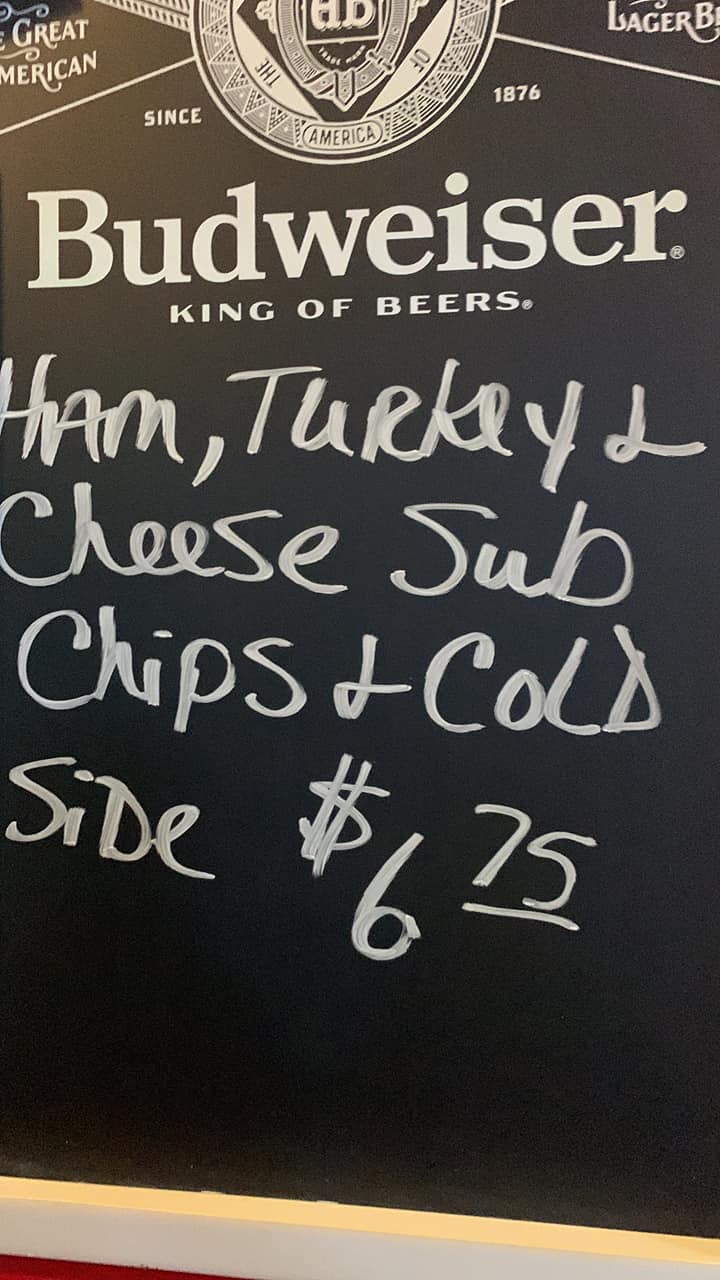 GREAT
LAGER
MERICAN
THE
TRADE MARK
OF
SINCE
1876
AMERICA
Budweiser®
KING OF BEERS®
HAM, TURKey &
Cheese Sub
Chips & COLD
SiDe $6 75